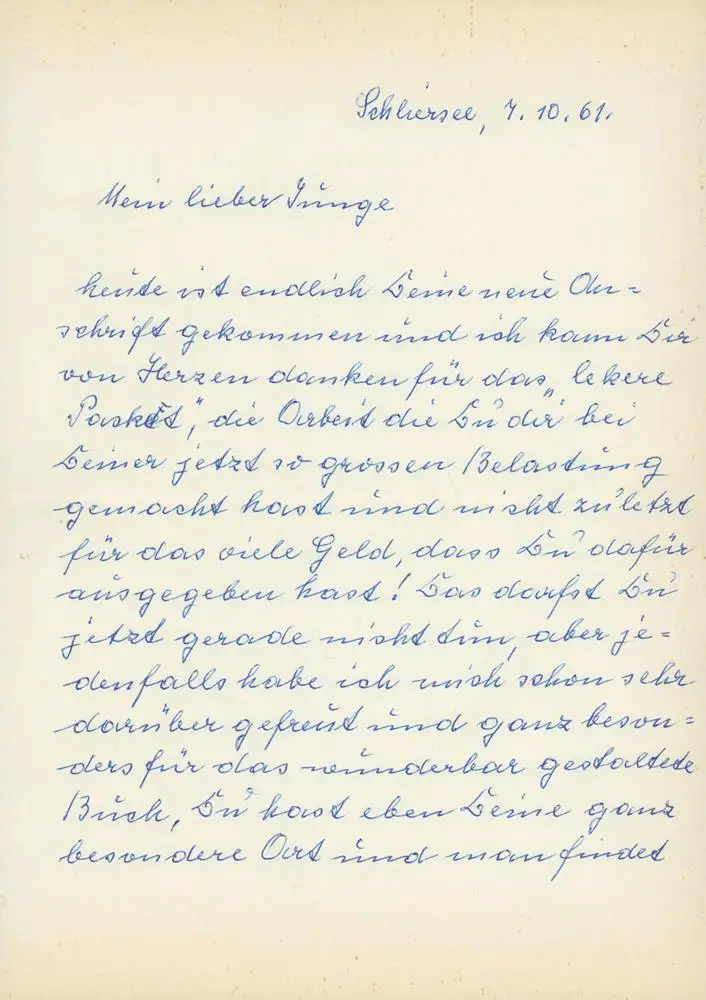 Schliersee, 7. 10. 61.
Mein lieber Junge
heute ist endlich Deine neue An=
schrift gekommen und ich kann Dir
von Herzen danken für das „lekere
Packet", die Arbeit die Du dir bei
Deiner jetzt so grossen Belastung
gemacht hast und nicht zuletzt
für das viele Geld, dass Du dafür
ausgegeben hast! Das darfst Du
jetzt gerade nicht tun, aber je=
denfalls habe ich mich schon sehr
darüber gefreut und ganz beson=
ders für das wunderbar gestaltete
Buch, Du hast eben Deine ganz
besondere Art und man findet